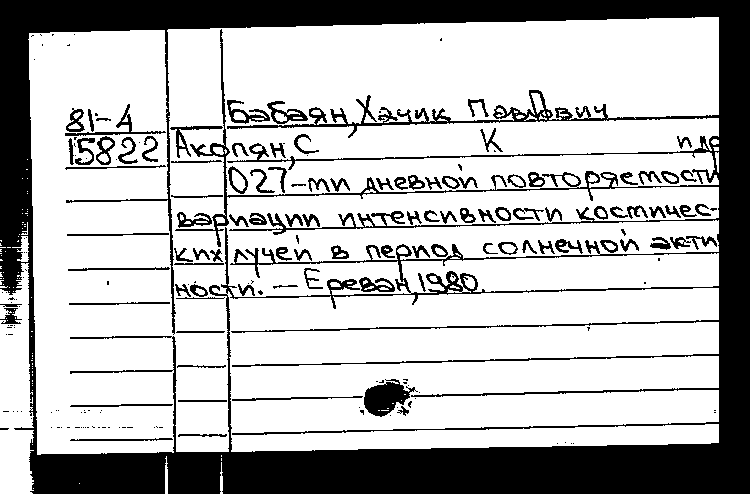 81-4
Бабаян, Хачик Павлович
15822
Акопян, С К и др
О 27-ми дневной повторяемости
вариации интенсивности космичес-
ких лучей в период солнечной акти
ности. — Ереван, 1980.